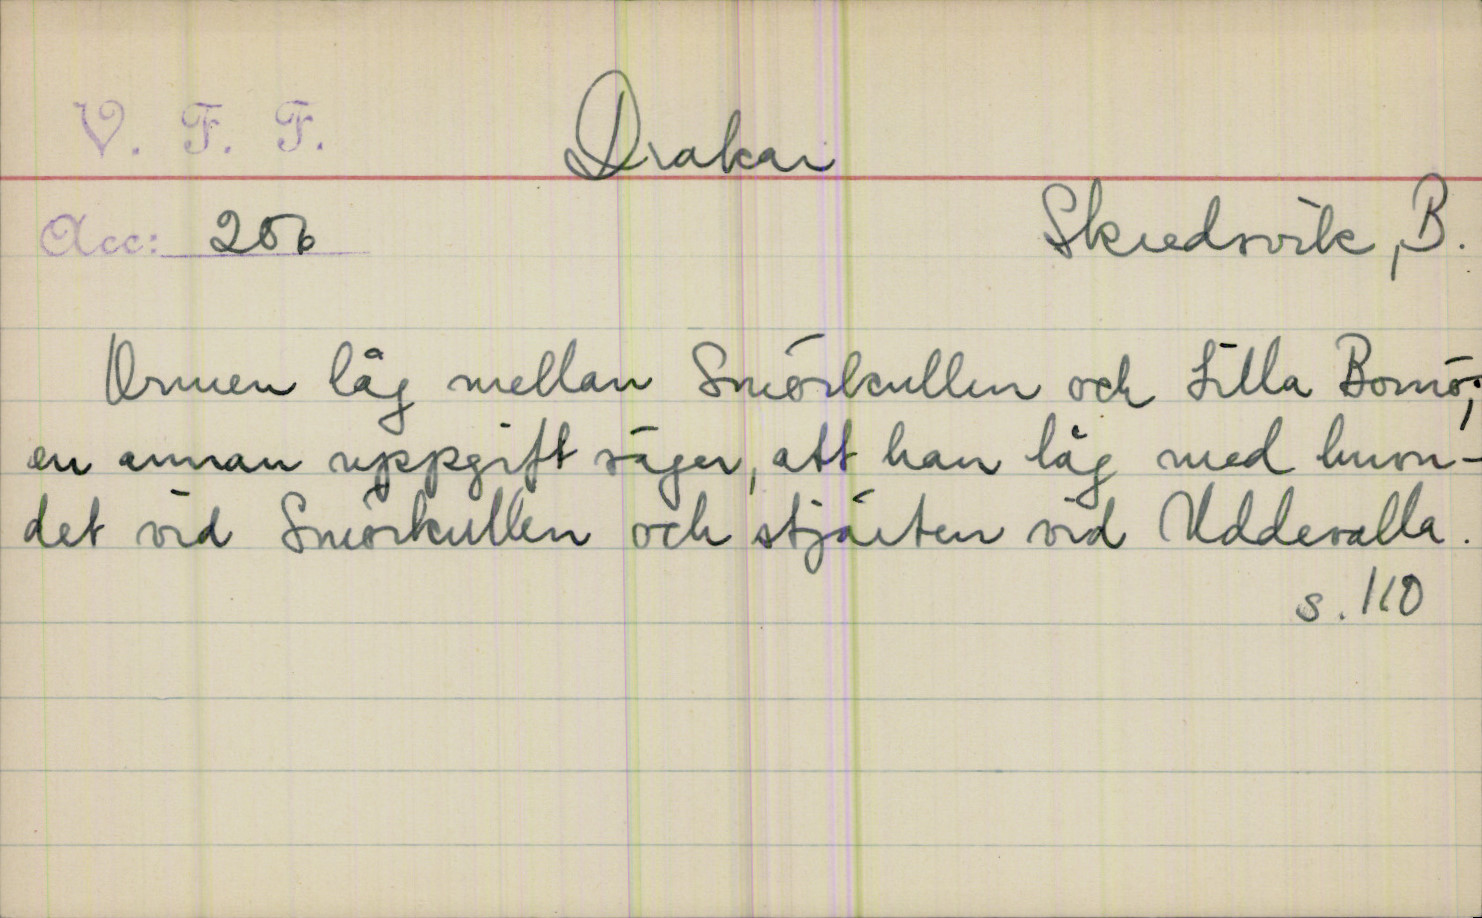 V. F. F.
Drakar
Acc: 206
Skredsvik, B.
Ormen låg mellan Smörkullen och Lilla Bornö;
en annan uppgift säger, att han låg med huvu-
det vid Smörkullen och stjärten vid Uddevalla.
s. 110